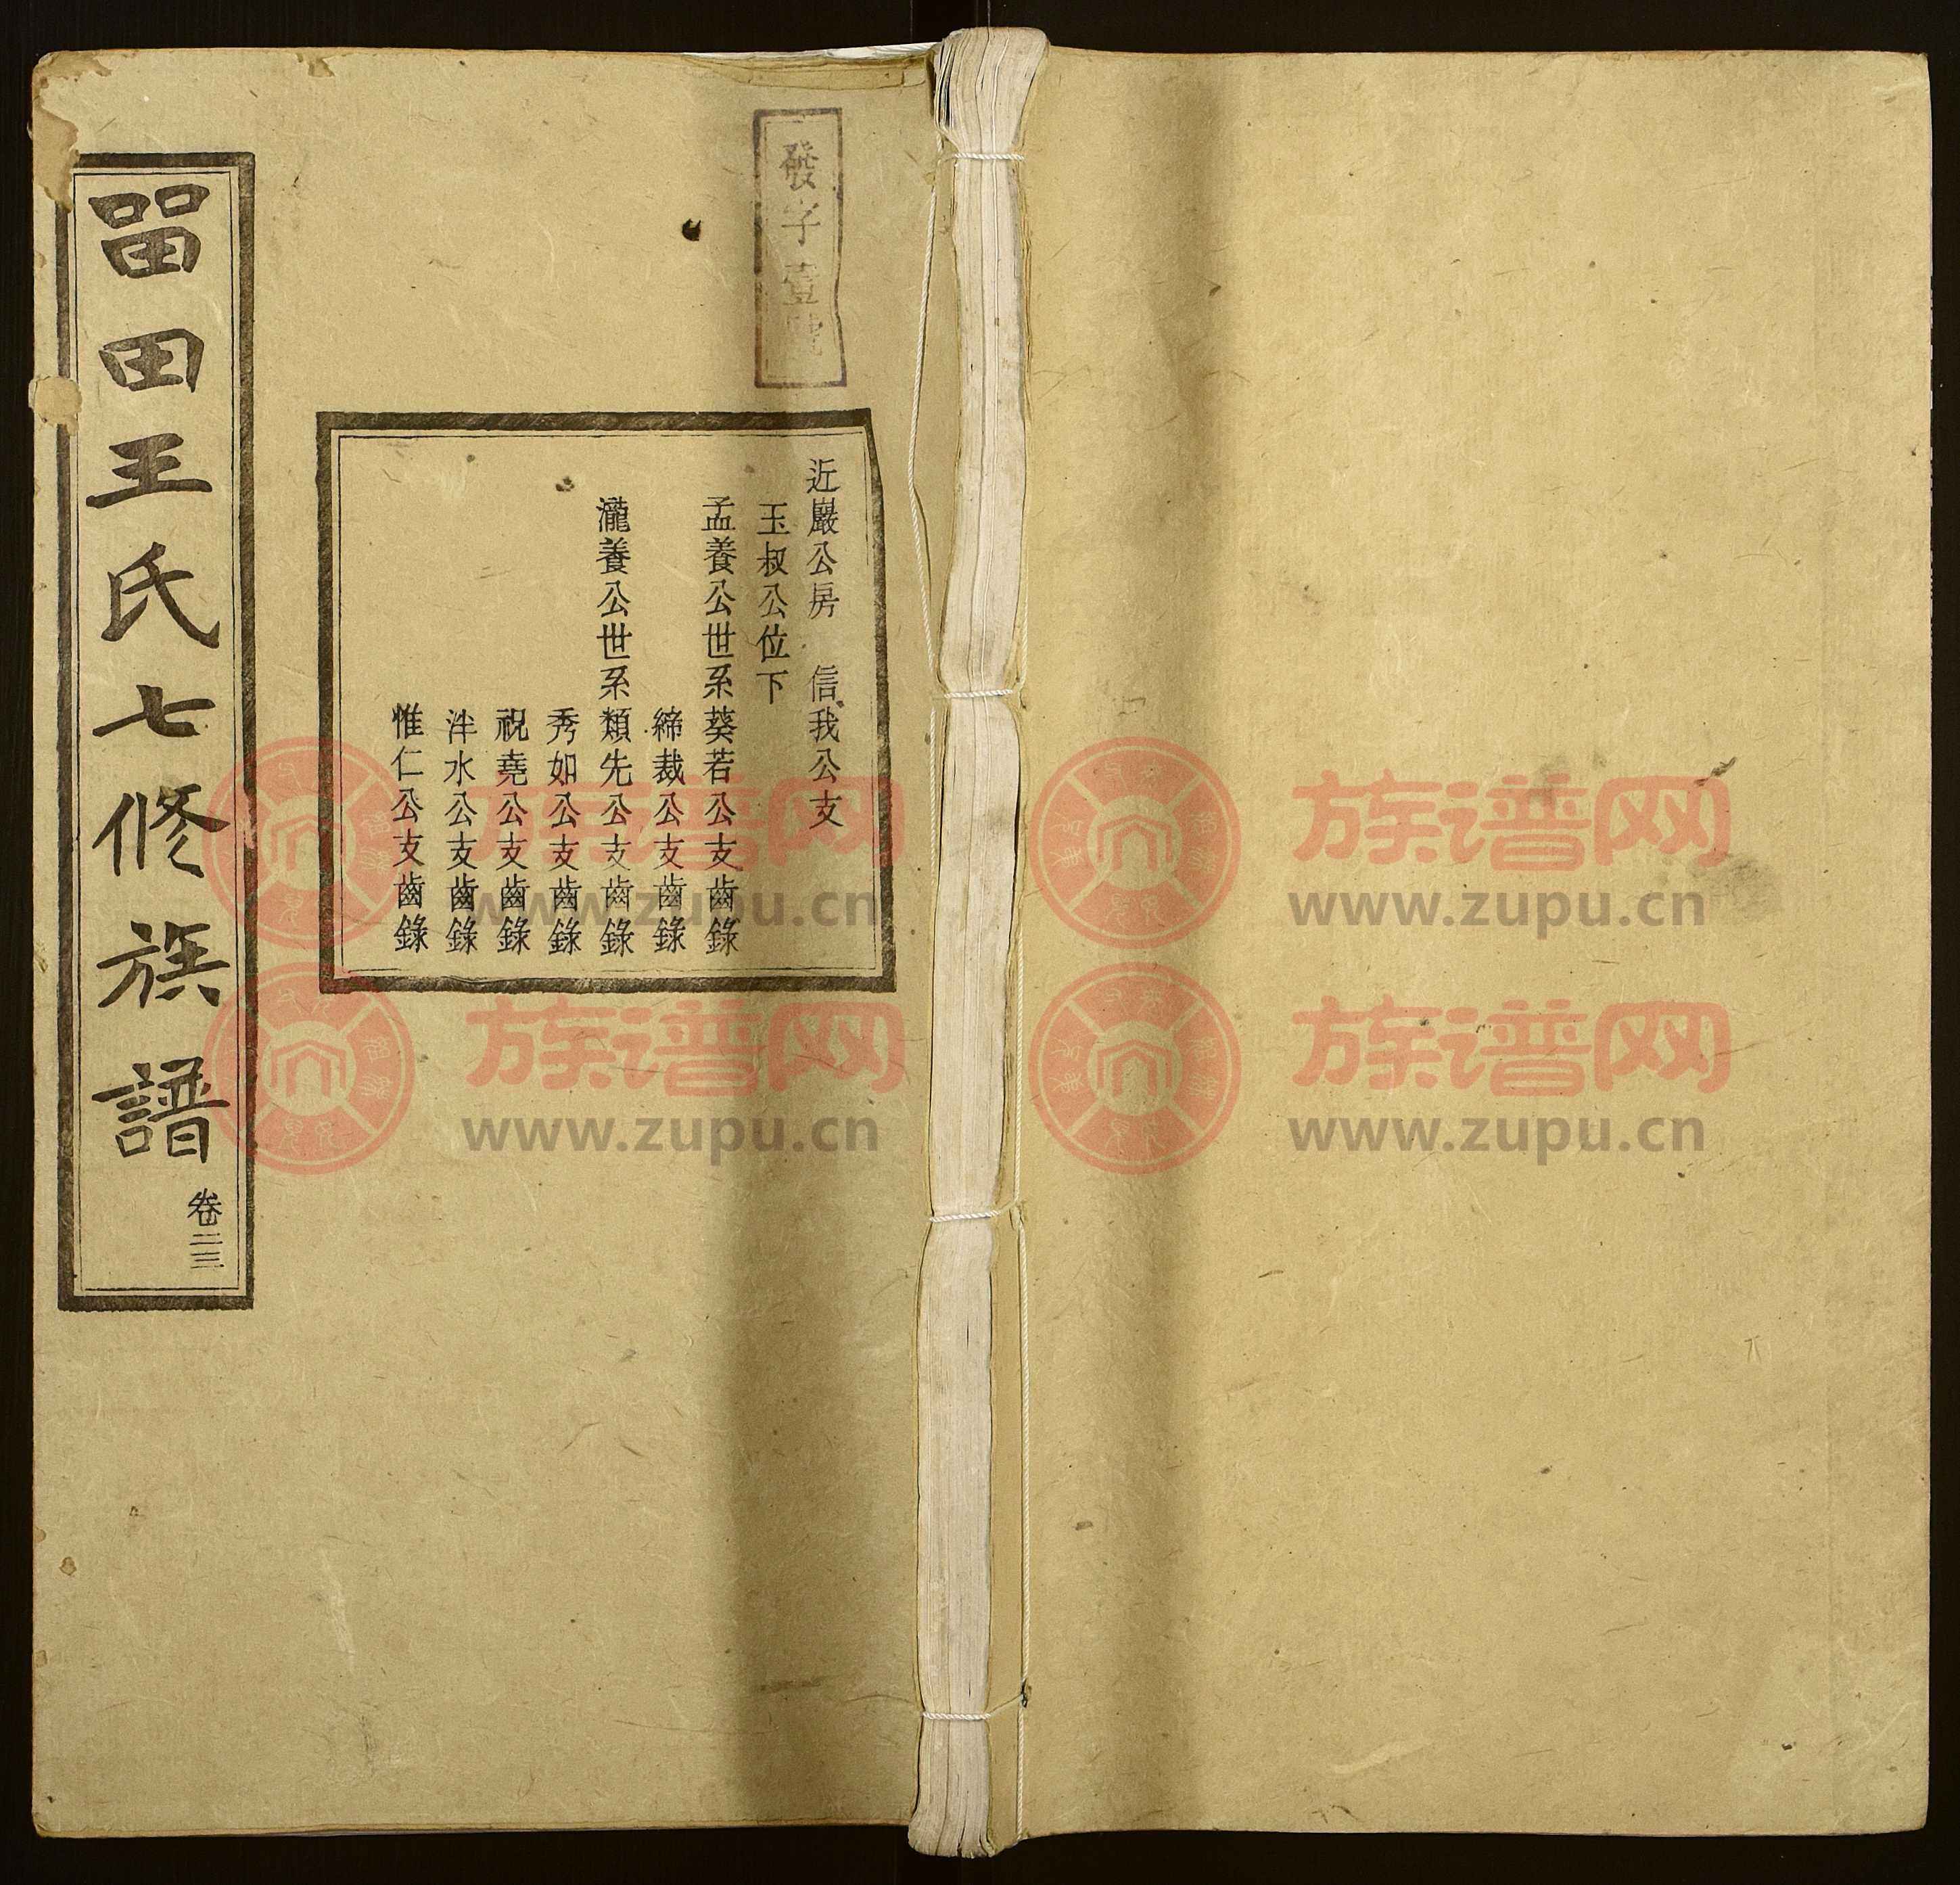 發字壹號
近巖公房 信我公支
玉叔公位下
孟養公世系葵若公支齒錄
締裁公支齒錄
瀧養公世系類先公支齒錄
秀如公支齒錄
祝堯公支齒錄
泮水公支齒錄
惟仁公支齒錄
畱田王氏七修族譜
卷二三
族谱网
www.zupu.cn
族谱网
www.zupu.cn
族谱网
www.zupu.cn
族谱网
www.zupu.cn